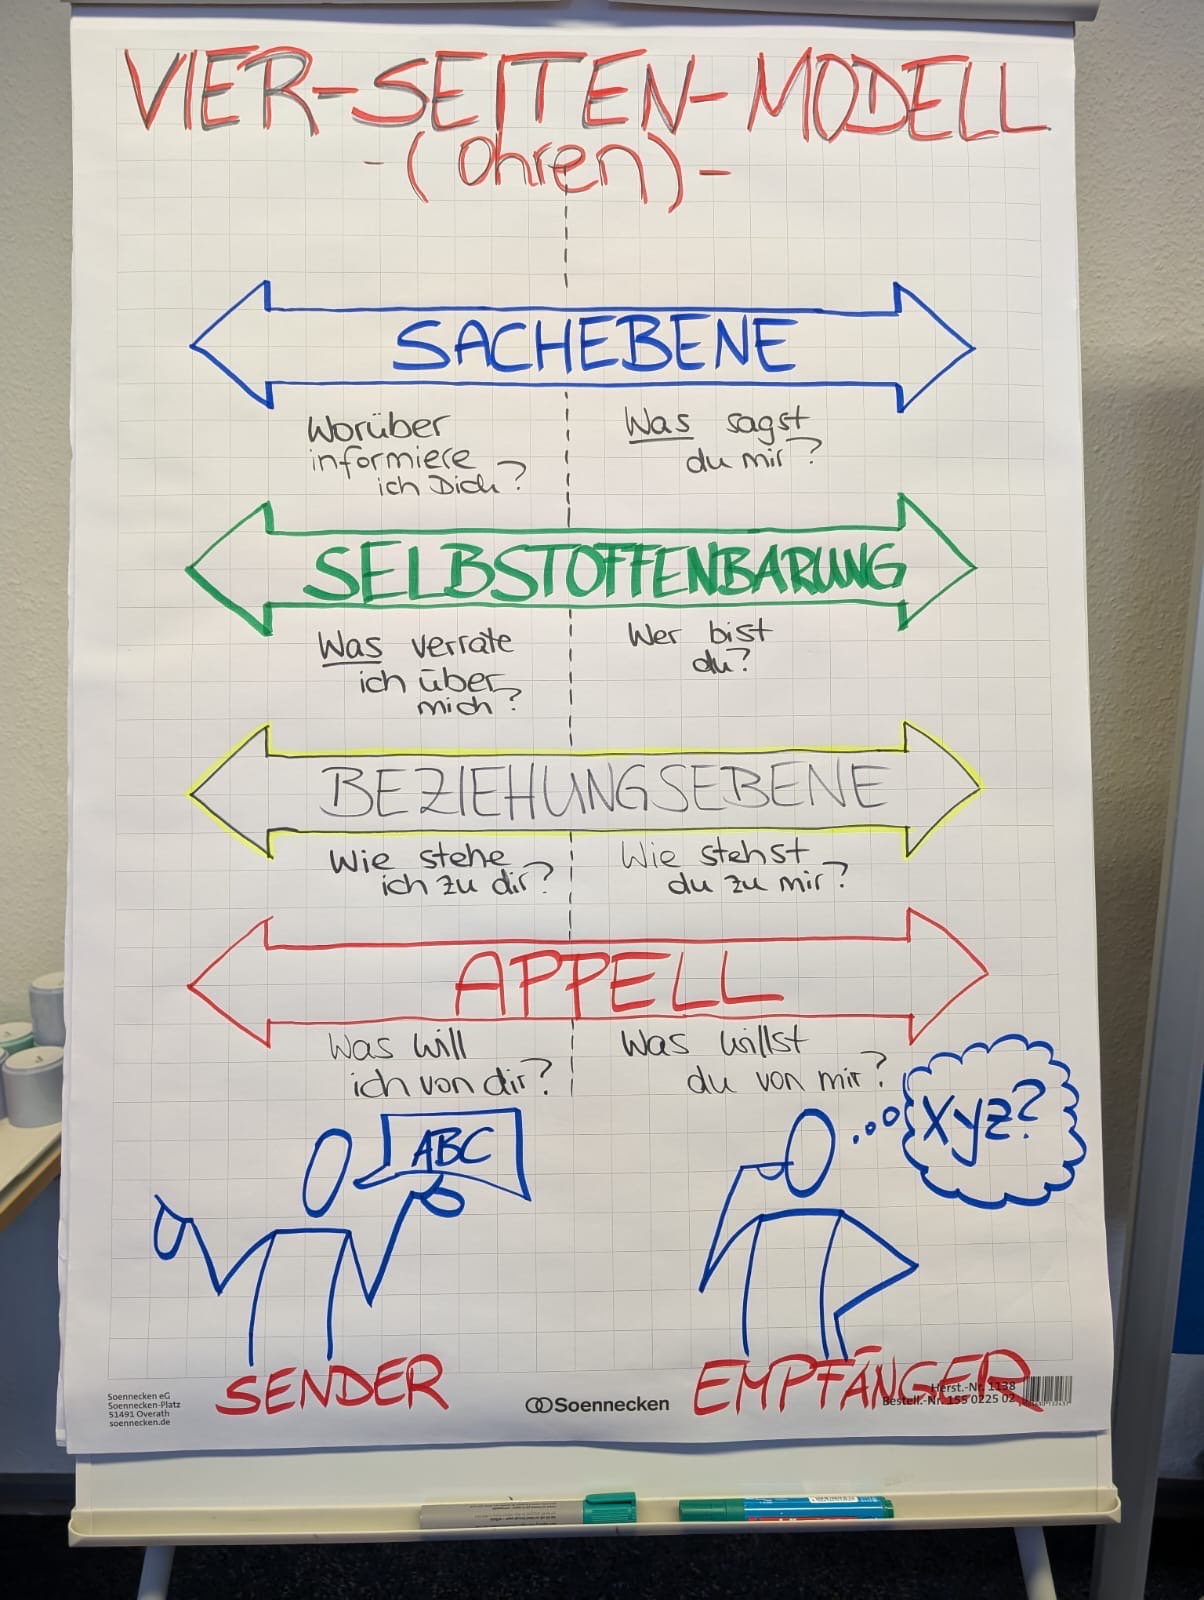 VIER-SEITEN-MODELL
-(Ohren)-
SACHEBENE
Worüber
informiere
ich Dich?
Was sagst
du mir?
SELBSTOFFENBARUNG
Was verrate
ich über
mich?
Wer bist
du?
BEZIEHUNGSEBENE
Wie stehe
ich zu dir?
Wie stehst
du zu mir?
APPELL
Was will
ich von dir?
Was willst
du von mir?
ABC
xyz?
SENDER
EMPFÄNGER
Soennecken eG
Soennecken-Platz
51491 Overath
soennecken.de
Soennecken
Herst.-Nr. 1138
Bestell.-Nr. 155 0225 02